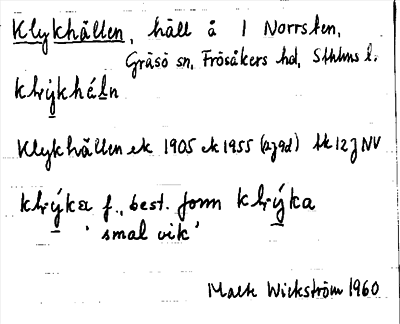 Klykhällen, häll å 1 Norrsten,
Gräsö sn, Frösåkers hd, Sthlms l.
Klykhällen ek 1905 ek 1955 12j NV
f., best. form
'smal vik'
Malte Wickström 1960